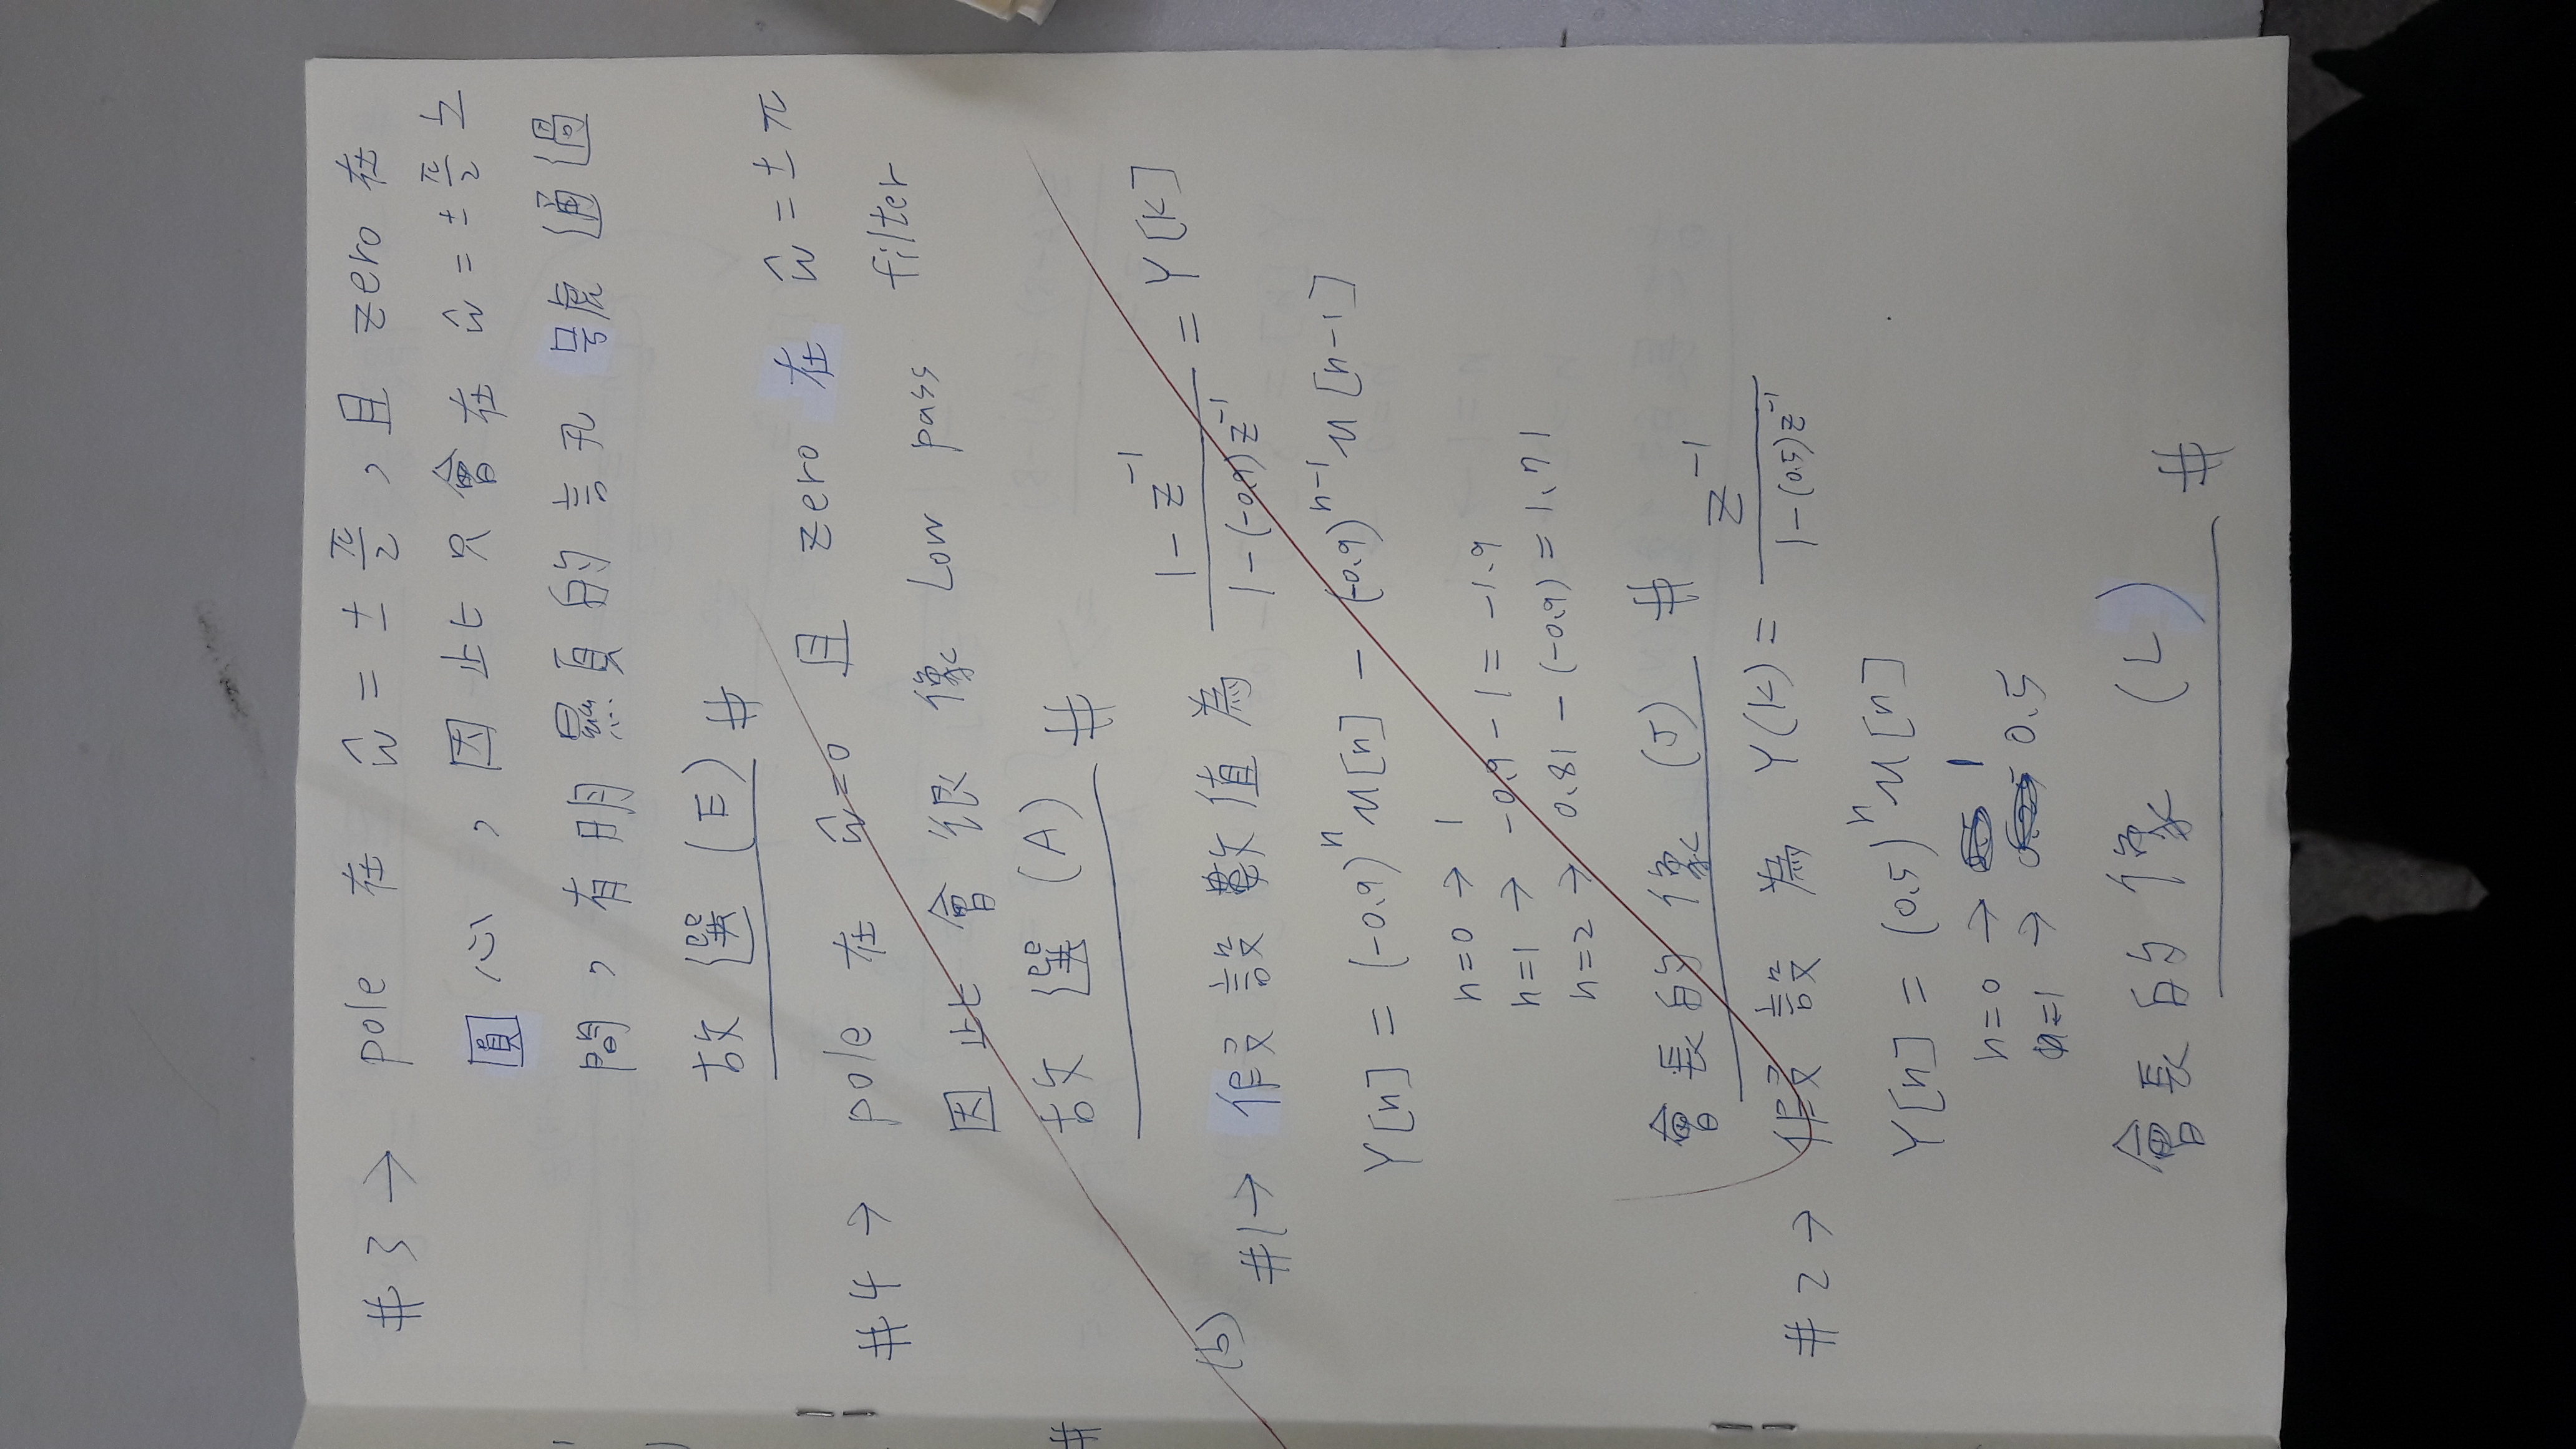 #3 → pole 在 ŵ = ± π/2 , 且 zero 在
圓心 , 因此只會在 ŵ = ± π/2 之
間 , 有明顯的訊號通過
故選 (E) #
#4 → pole 在 ŵ=0 且 zero 在 ŵ = ± π
因此會很像 Low pass filter
故選 (A) #
(b)
#1 → 假設數值為 (1 - z^-1) / (1 - (-0.9)z^-1) = Y[k]
Y[n] = (-0.9)^n u[n] - (-0.9)^(n-1) u[n-1]
n=0 → 1
n=1 → -0.9 - 1 = -1.9
n=2 → 0.81 - (-0.9) = 1.71
會長的像 (J) #
#2 → 假設為 Y(k) = z^-1 / (1 - (0.5)z^-1)
Y[n] = (0.5)^n u[n]
n=0 → 1
n=1 → 0.5
會長的像 (L) #